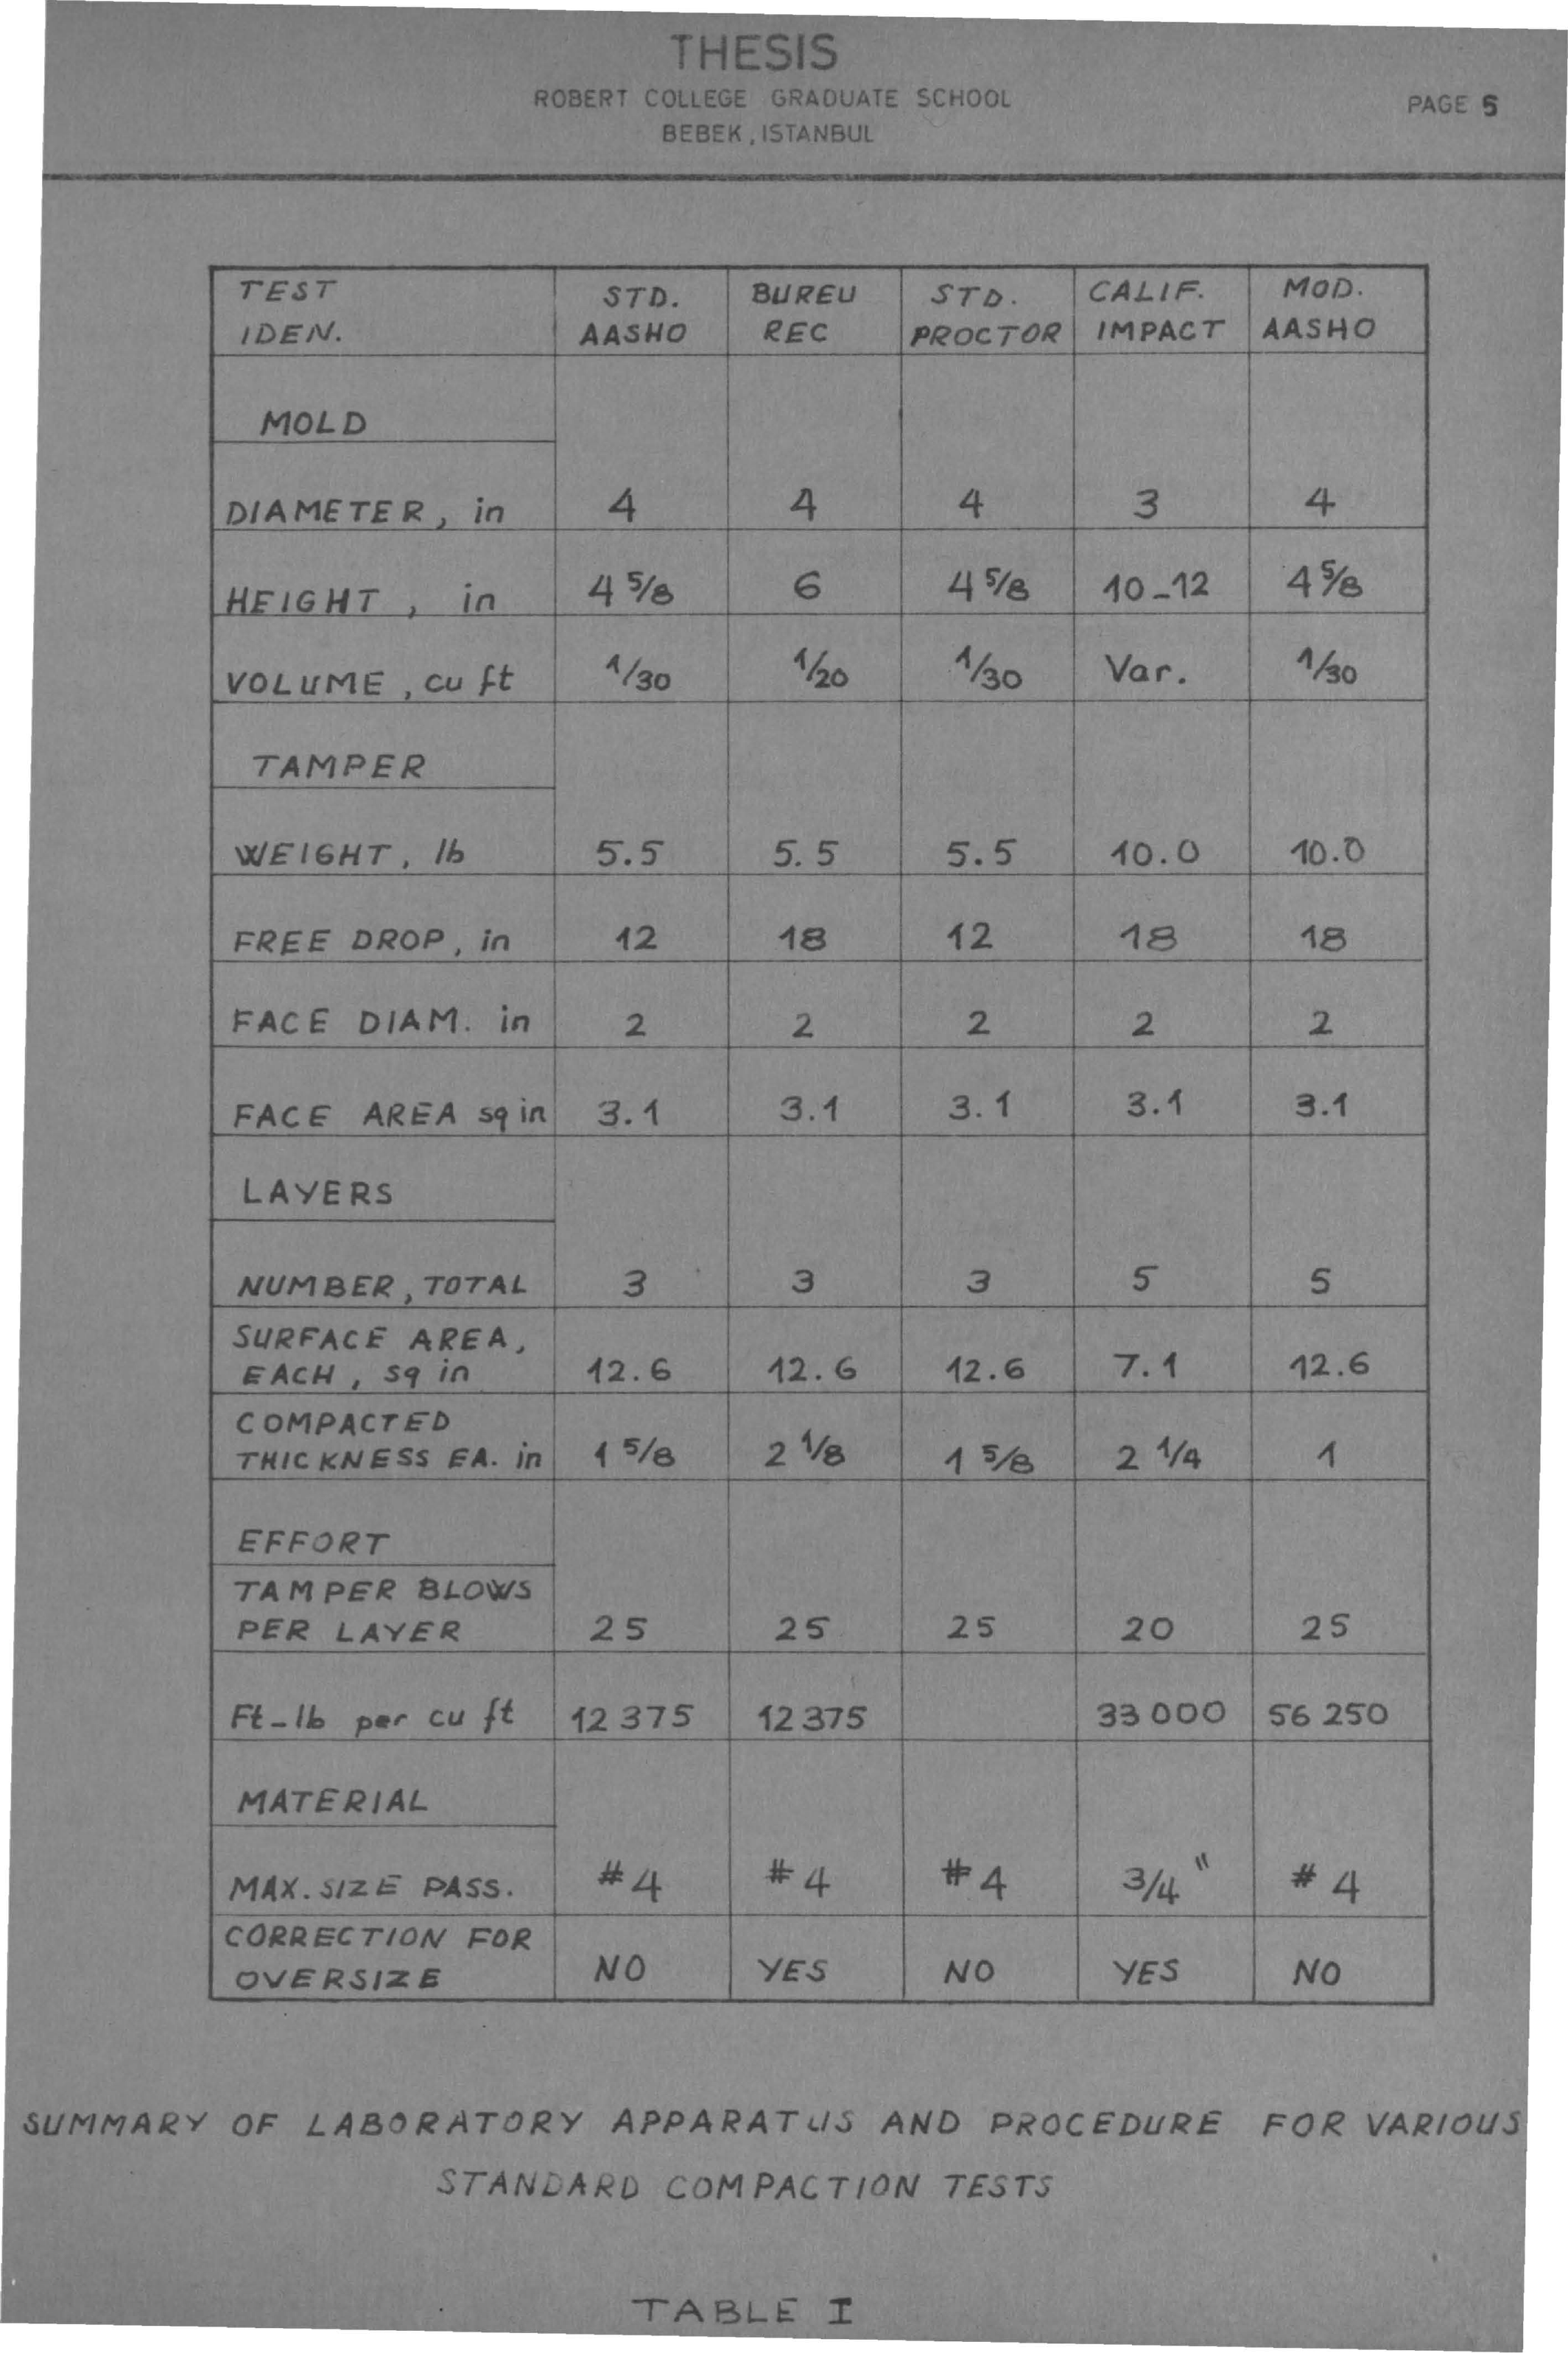 THESIS
ROBERT COLLEGE GRADUATE SCHOOL
PAGE 5
BEBEK, ISTANBUL
TEST IDEN. STD. AASHO BUREU REC STD. PROCTOR CALIF. IMPACT MOD. AASHO
MOLD
DIAMETER, in 4 4 4 3 4
HEIGHT, in 4 5/8 6 4 5/8 10-12 4 5/8
VOLUME, cu ft 1/30 1/20 1/30 Var. 1/30
TAMPER
WEIGHT, lb 5.5 5.5 5.5 10.0 10.0
FREE DROP, in 12 18 12 18 18
FACE DIAM. in 2 2 2 2 2
FACE AREA sq in 3.1 3.1 3.1 3.1 3.1
LAYERS
NUMBER, TOTAL 3 3 3 5 5
SURFACE AREA,
EACH, sq in 12.6 12.6 12.6 7.1 12.6
COMPACTED
THICKNESS EA. in 1 5/8 2 1/8 1 5/8 2 1/4 1
EFFORT
TAMPER BLOWS
PER LAYER 25 25 25 20 25
Ft-lb per cu ft 12 375 12 375 33 000 56 250
MATERIAL
MAX. SIZE PASS. #4 #4 #4 3/4" #4
CORRECTION FOR
OVERSIZE NO YES NO YES NO
SUMMARY OF LABORATORY APPARATUS AND PROCEDURE FOR VARIOUS
STANDARD COMPACTION TESTS
TABLE I